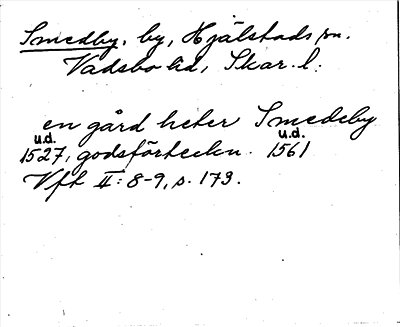 Smedby, by, Hjälstads sn.
Vadsbo hd, Skar. l.
en gård heter Smedeby
u.d. u.d.
1527, godsförteckn. 1561
Vft II: 8-9, s. 173.